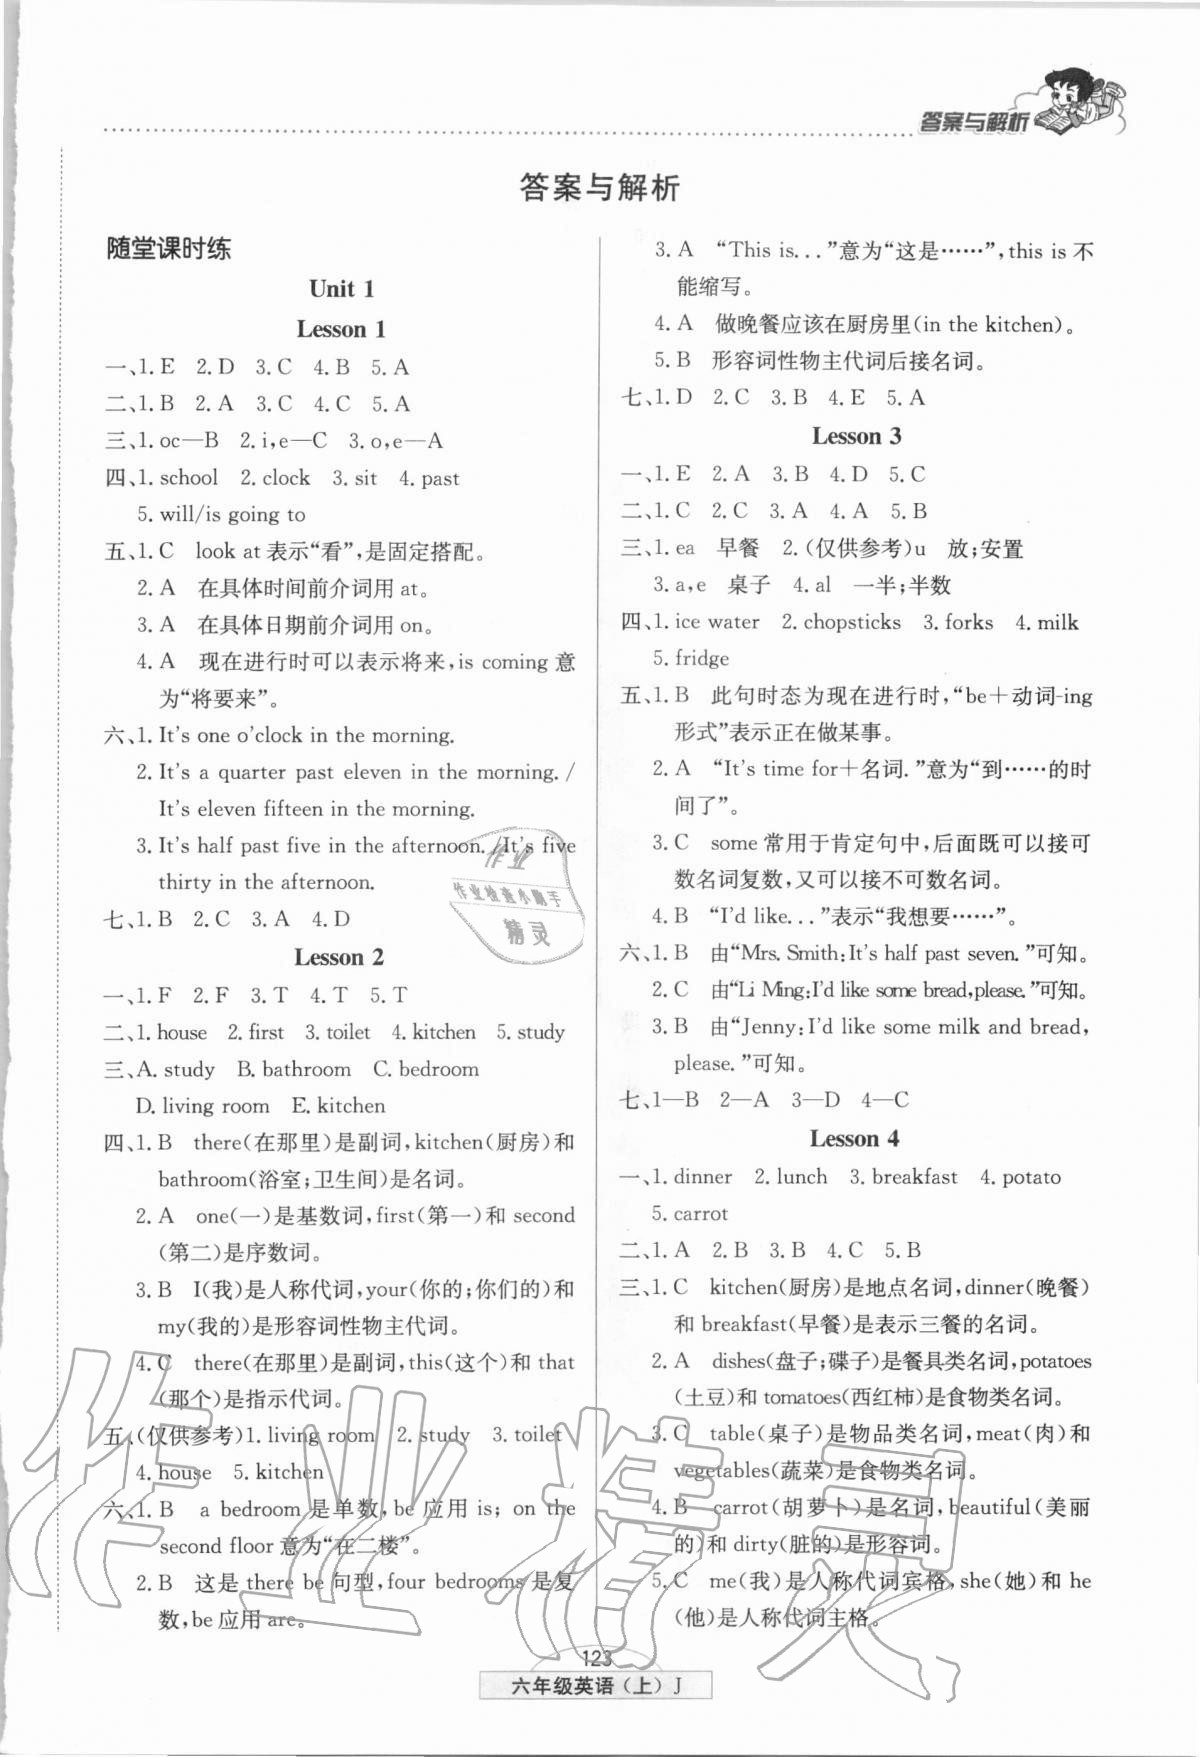 答案与解析
答案与解析
随堂课时练
Unit 1
Lesson 1
一、1. E 2. D 3. C 4. B 5. A
二、1. B 2. A 3. C 4. C 5. A
三、1. oc—B 2. i,e—C 3. o,e—A
四、1. school 2. clock 3. sit 4. past
5. will/is going to
五、1. C look at 表示“看”,是固定搭配。
2. A 在具体时间前介词用 at。
3. A 在具体日期前介词用 on。
4. A 现在进行时可以表示将来,is coming 意
为“将要来”。
六、1. It's one o'clock in the morning.
2. It's a quarter past eleven in the morning. /
It's eleven fifteen in the morning.
3. It's half past five in the afternoon. /It's five
thirty in the afternoon.
七、1. B 2. C 3. A 4. D
Lesson 2
一、1. F 2. F 3. T 4. T 5. T
二、1. house 2. first 3. toilet 4. kitchen 5. study
三、A. study B. bathroom C. bedroom
D. living room E. kitchen
四、1. B there(在那里)是副词,kitchen(厨房)和
bathroom(浴室;卫生间)是名词。
2. A one(一)是基数词,first(第一)和 second
(第二)是序数词。
3. B I(我)是人称代词,your(你的;你们的)和
my(我的)是形容词性物主代词。
4. C there(在那里)是副词,this(这个)和 that
(那个)是指示代词。
五、(仅供参考)1. living room 2. study 3. toilet
4. house 5. kitchen
六、1. B a bedroom 是单数,be 应用 is; on the
second floor 意为“在二楼”。
2. B 这是 there be 句型,four bedrooms 是复
数,be 应用 are。
3. A “This is...”意为“这是……”,this is 不
能缩写。
4. A 做晚餐应该在厨房里(in the kitchen)。
5. B 形容词性物主代词后接名词。
七、1. D 2. C 3. B 4. E 5. A
Lesson 3
一、1. E 2. A 3. B 4. D 5. C
二、1. C 2. C 3. A 4. A 5. B
三、1. ea 早餐 2. (仅供参考)u 放;安置
3. a,e 桌子 4. al 一半;半数
四、1. ice water 2. chopsticks 3. forks 4. milk
5. fridge
五、1. B 此句时态为现在进行时,“be+动词-ing
形式”表示正在做某事。
2. A “It's time for+名词.”意为“到……的时
间了”。
3. C some 常用于肯定句中,后面既可以接可
数名词复数,又可以接不可数名词。
4. B “I'd like...”表示“我想要……”。
六、1. B 由“Mrs. Smith:It's half past seven. ”可知。
2. C 由“Li Ming:I'd like some bread,please.”可知。
3. B 由“Jenny:I'd like some milk and bread,
please. ”可知。
七、1—B 2—A 3—D 4—C
Lesson 4
一、1. dinner 2. lunch 3. breakfast 4. potato
5. carrot
二、1. A 2. B 3. B 4. C 5. B
三、1. C kitchen(厨房)是地点名词,dinner(晚餐)
和 breakfast(早餐)是表示三餐的名词。
2. A dishes(盘子;碟子)是餐具类名词,potatoes
(土豆)和 tomatoes(西红柿)是食物类名词。
3. C table(桌子)是物品类名词,meat(肉)和
vegetables(蔬菜)是食物类名词。
4. B carrot(胡萝卜)是名词,beautiful(美丽
的)和 dirty(脏的)是形容词。
5. C me(我)是人称代词宾格,she(她)和 he
(他)是人称代词主格。
作业
作业检查小助手
精灵
作业精灵
123
六年级英语(上) J